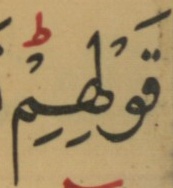 قَوْلِهِمْ ط